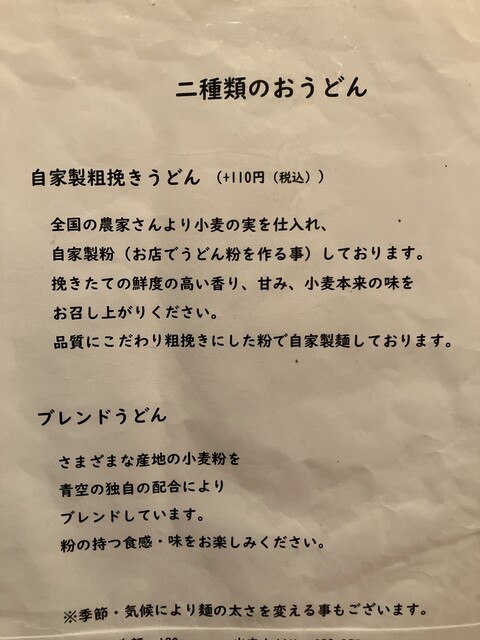 二種類のおうどん
自家製粗挽きうどん （+110円（税込））
全国の農家さんより小麦の実を仕入れ、
自家製粉（お店でうどん粉を作る事）しております。
挽きたての鮮度の高い香り、甘み、小麦本来の味を
お召し上がりください。
品質にこだわり粗挽きにした粉で自家製麺しております。
ブレンドうどん
さまざまな産地の小麦粉を
青空の独自の配合により
ブレンドしています。
粉の持つ食感・味をお楽しみください。
※季節・気候により麺の太さを変える事もございます。